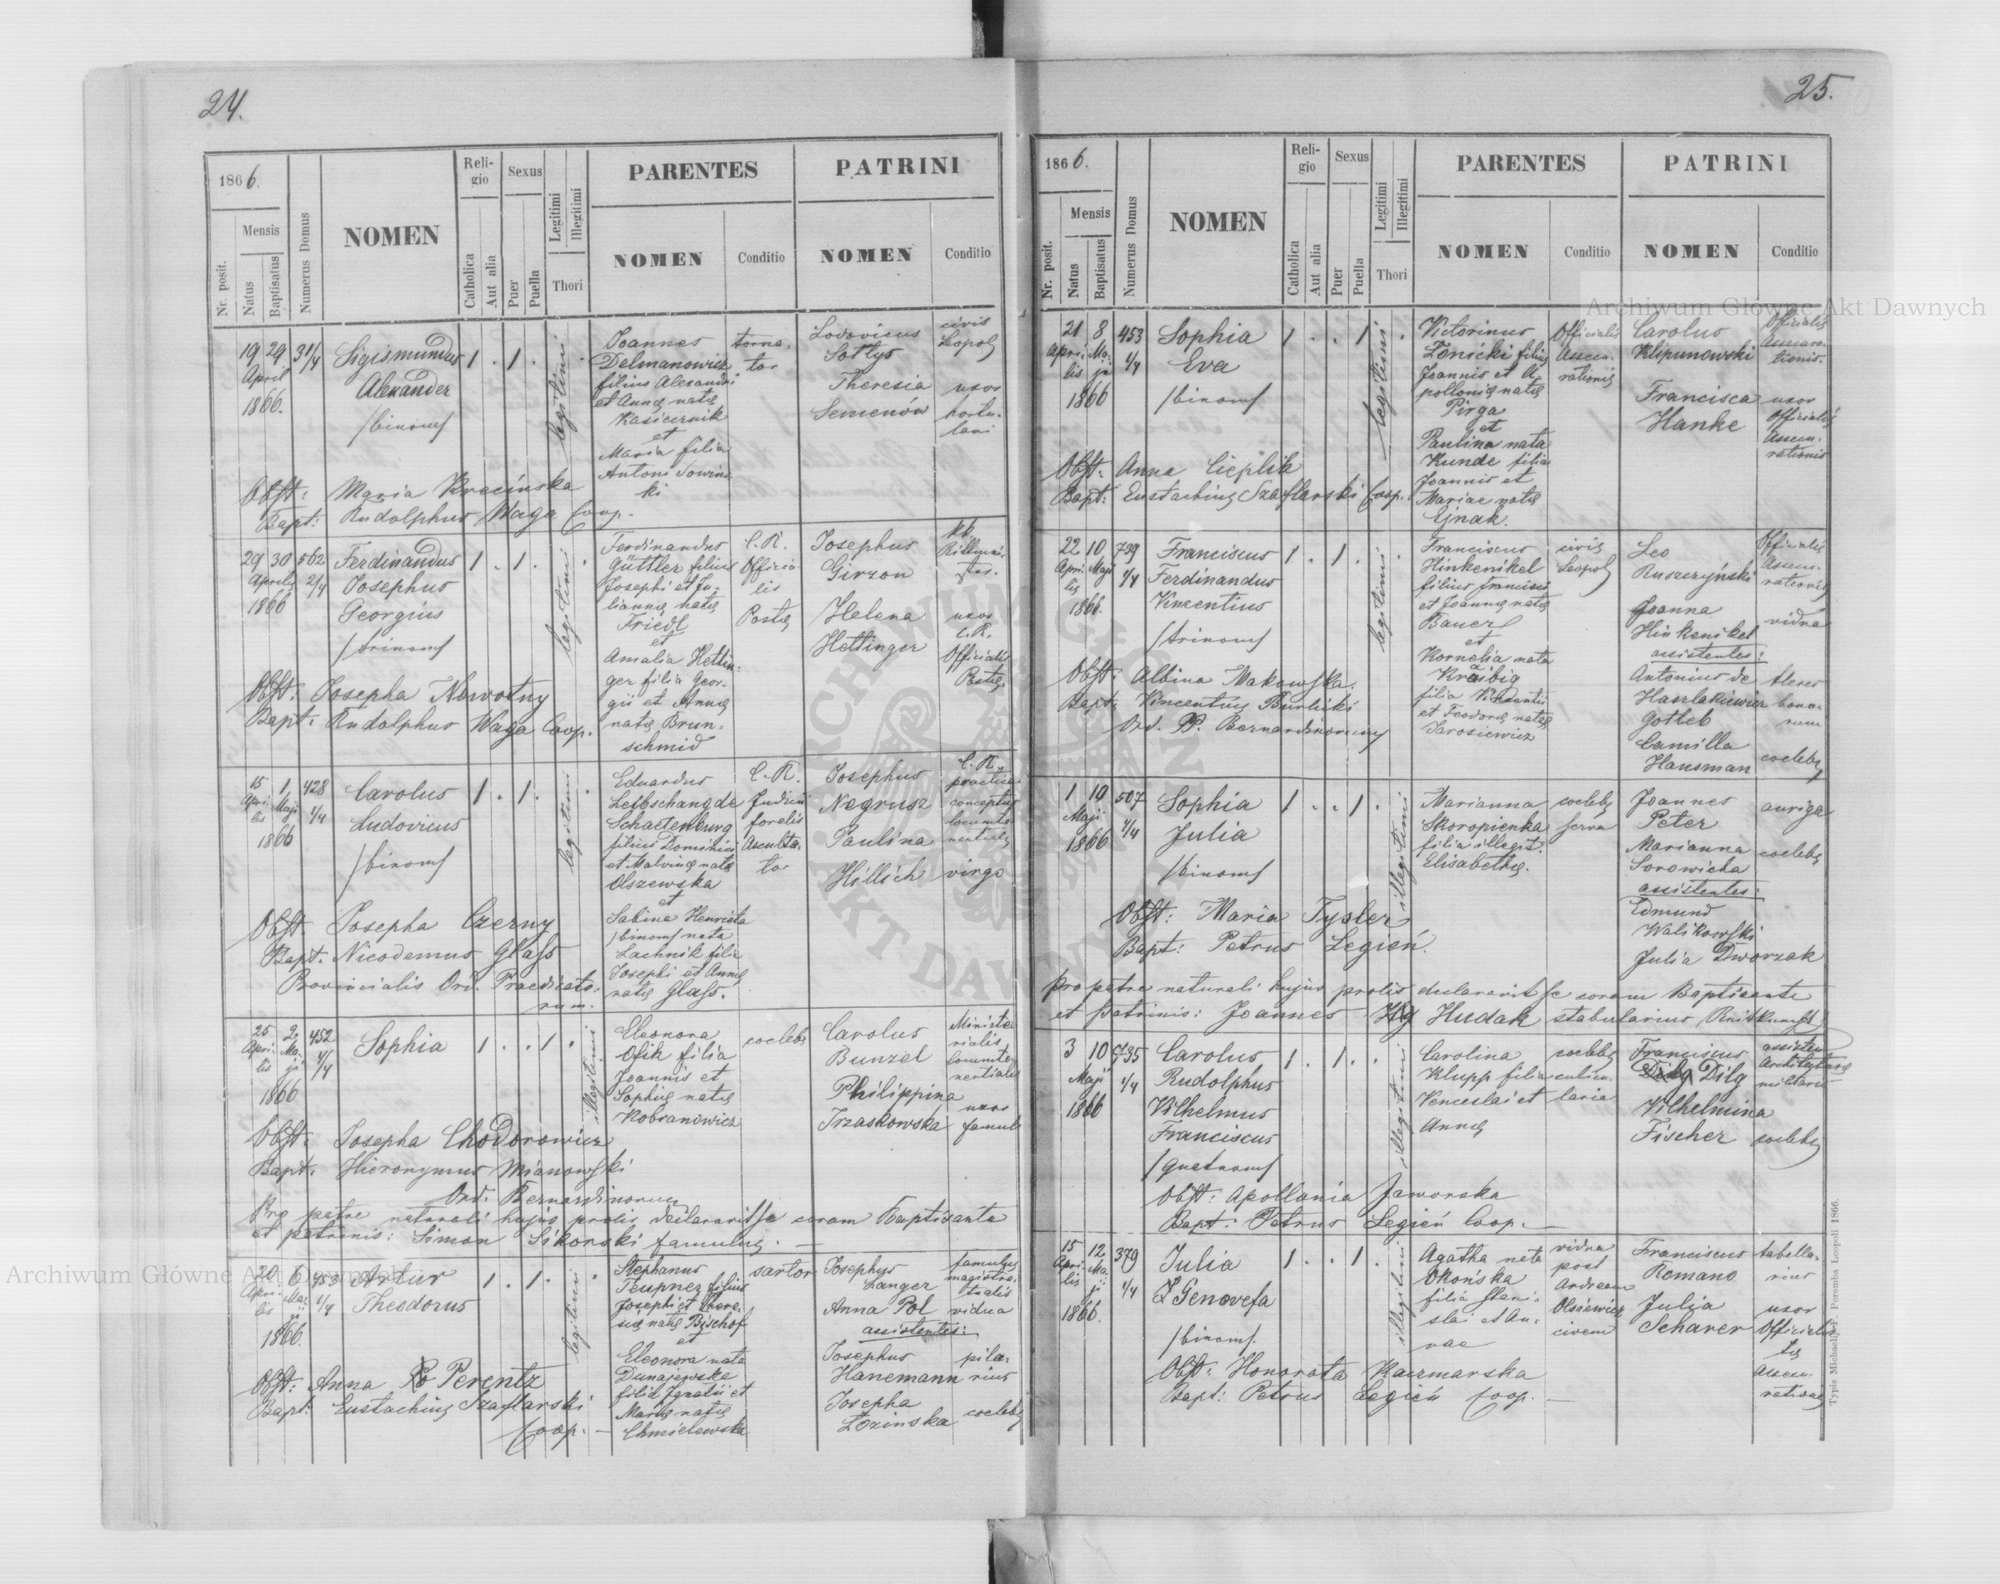 24.
1866.
Nr. posit.
Mensis
Natus
Baptisatus
Numerus Domus
NOMEN
Religio
Catholica
Aut alia
Sexus
Puer
Puella
Legitimi
Illegitimi
Thori
PARENTES
NOMEN
Conditio
PATRINI
NOMEN
Conditio
19 29 31/4
April
1866.
Sigismundus
Alexander
/binom/
1 . 1 .
legitimi
Joannes
Delmanowicz
filius Alexandri
et Annę natę
Kasicernik
et
Maria filia
Antoni Sowiń
ki
torna-
tor
Lodovicus
Sottys
Theresia
Semenów
civis
Leopol
uxor
hortu-
lani
Obst: Maria Kracińska
Bapt: Rudolphus Waga Coop.
29 30 562
Aprilis 2/4
1866
Ferdinandus
Josephus
Georgius
/trinom/
1 . 1 .
legitimi
Ferdinandus
Güttler filius
Josephi et Ju-
liannę natę
Friedl
et
Amalia Hettin-
ger filia Geor-
gii et Annę
natę Brun-
schmid
C. R.
Officia-
lis
Postę
Josephus
Girzon
Helena
Hettinger
kk
Rittmei-
ster.
uxor
C. R.
Officialis
Postę
Obst: Josepha Nowotny
Bapt: Rudolphus Waga Coop.
15 1 428
Apri- Maji 1/4
lis
1866
Carolus
Ludovicus
/binom/
1 . 1 .
legitimi
Eduardus
Leibschangde
Schaetenburg
filius Dominici
et Malvinę natę
Olszewska
et
Sabina Henrieta
/binom/ nata
Lachnik filia
Josephi et Annę
natę Glass.
C. R.
Judicii
forelis
Asculta-
tor
Josephus
Negrusz
Paulina
Hillich
C. R.
practic.
conceptus
locumte-
nentialis
virgo
Obst. Josepha Czerny
Bapt. Nicodemus Glass
Provincialis Ord. Praedicato-
rum.
25 2 452
Apri- Ma- 1/4
lis ji
1866
Sophia
1 . . 1 .
illegitimi
Eleonora
Osik filia
Joannis et
Sophię natę
Kobranowicz
coelebs
Carolus
Bunzel
Philippina
Trzaskowska
Ministe
rialis
locumte-
nentialis
uxor
famuli
Obst. Josepha Chodorowicz
Bapt. Hieronymus Mianowski
Ord. Bernardinorum
Pro patre naturali hujus prolis declaravit se coram Baptisante
et patrinis: Simon Sikorski famulus. —
20 6 453
Apri- Ma- 1/4
lis ji
1866.
Artur
Theodorus
1 . 1 .
legitimi
Stephanus
Teupner filius
Josephi et There-
się natę Bischof
et
Eleonora nata
Dunajewska
filia Ignatii et
Marię natę
Chmielewska
sartor
Josephus
Langer
Anna Pol
assistentes:
Josephus
Hanemann
Josepha
Łozinska
famulus
magistra-
tialis
vidua
pila-
rius
coelebs
Obst: Anna Perentz
Bapt. Eustachius Szaflarski
Coop. —
25.
1866.
Nr. posit.
Mensis
Natus
Baptisatus
Numerus Domus
NOMEN
Religio
Catholica
Aut alia
Sexus
Puer
Puella
Legitimi
Illegitimi
Thori
PARENTES
NOMEN
Conditio
PATRINI
NOMEN
Conditio
21 8 453
Apri- Ma- 1/4
lis ja
1866
Sophia
Eva
/binom/
1 . . 1 .
legitimi
Victorinus
Zonicki filius
Joannis et A-
pollonię natę
Pirga
et
Paulina nata
Kunde filia
Joannis et
Mariae natę
Ejnak.
Officialis
Assecu-
rationis
Carolus
Klipunowski
Francisca
Hanke
Officialis
Assecura-
tionis.
uxor
Officialis
Assecu-
rationis
Obst. Anna Cieplik
Bapt: Eustachius Szaflarski Coop.
22 10 739
Apri- Maji 1/4
lis
1866.
Franciscus
Ferdinandus
Vincentius
/trinom/
1 . 1 .
legitimi
Franciscus
Hinkenikel
filius Francisci
et Joannę natę
Bauer
et
Kornelia nata
Kraibig
filia Vincentii
et Feodorę natę
Jarosiewicz
civis
Leopol
Leo
Ruszczyński
Joanna
Hinkenikel
assistentes:
Antonius de
Haszlakiewicz
Gotleb
Camilla
Hausman
Officialis
Assecu-
rationis
vidua
heres
bono-
rum
coelebs
Obst: Albina Makowska.
Bapt. Vincentius Burlicki
Ord. PP. Bernardinorum
1 19 507
Maji 1/4
1866
Sophia
Julia
/binom/
1 . . 1 .
illegitimi
Marianna
Skoropienka
filia illegit.
Elisabethę.
coelebs
serva
Joannes
Peter
Marianna
Sorowicka
assistentes:
Edmund
Walikowski
Julia Dworzak
auriga
coelebs
Obst: Maria Tysler
Bapt: Petrus Legień.
pro patre naturali hujus prolis declaravit se coram Baptisante
et patrinis: Joannes Hudak stabularius
3 10 735
Maji 1/4
1866
Carolus
Rudolphus
Vilhelmus
Franciscus
/quatnom/
1 . 1 .
illegitimi
Carolina
Klupp filia
Venceslai et
Annę
coelebs
culin-
laria
Franciscus
Dilg
Vilhelmina
Fischer
assisten
Architecturę
militaris
coelebs
Obst: Apollonia Jaworska
Bapt: Petrus Legień Coop. —
15 12 379
Apri- Ma- 1/4
lis ji
1866.
Julia
Genovefa
/binom/.
1 . . 1 .
illegitimi
Agatha nata
Okońska
filia Stani-
slai et An-
nae
vidua
post
Andream
Olsiewicz
civem
Franciscus
Romano
Julia
Scharer
tabella-
rius
uxor
Officia-
lis
Assecu-
rationis
Obst: Honorata Kaczmarska
Bapt: Petrus Legień Coop. —
Typis Michaelis F. Poremba Leopoli 1866.
Archiwum Główne Akt Dawnych
Archiwum Główne Akt Dawnych
ARCHIWUM GŁÓWNE AKT DAWNYCH